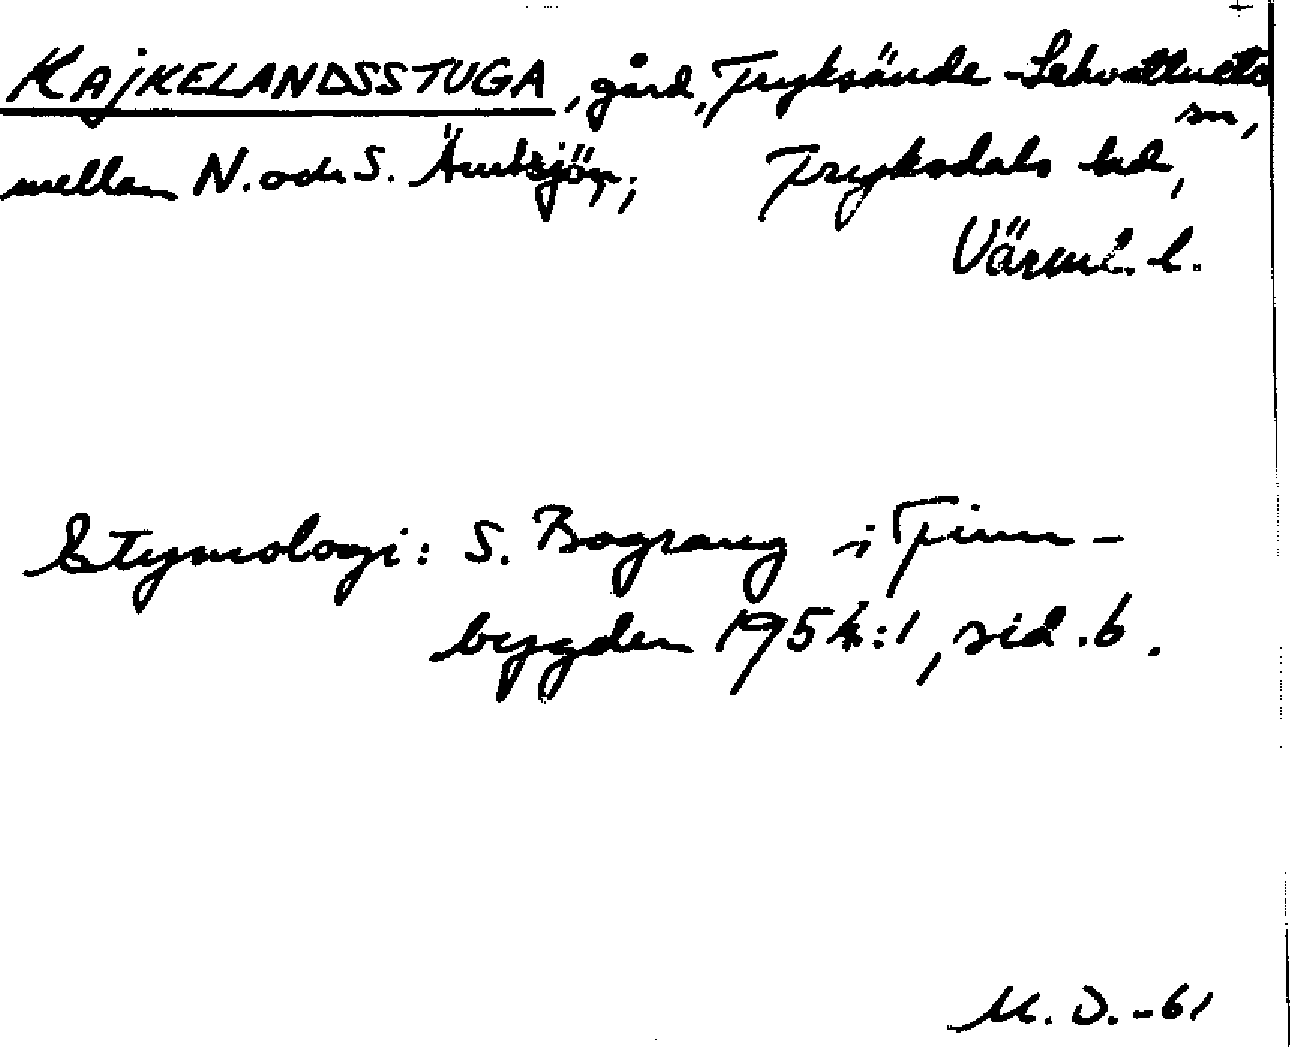 KAJKELANDSSTUGA, gård, Fryksände-Lekvattnets
sn,
mellan N. och S. Ämtsjön; Fryksdals hd,
Värml. l.
Etymologi: S. Bograng i Finn-
bygden 1954:1, sid. 6.
M. D. -61